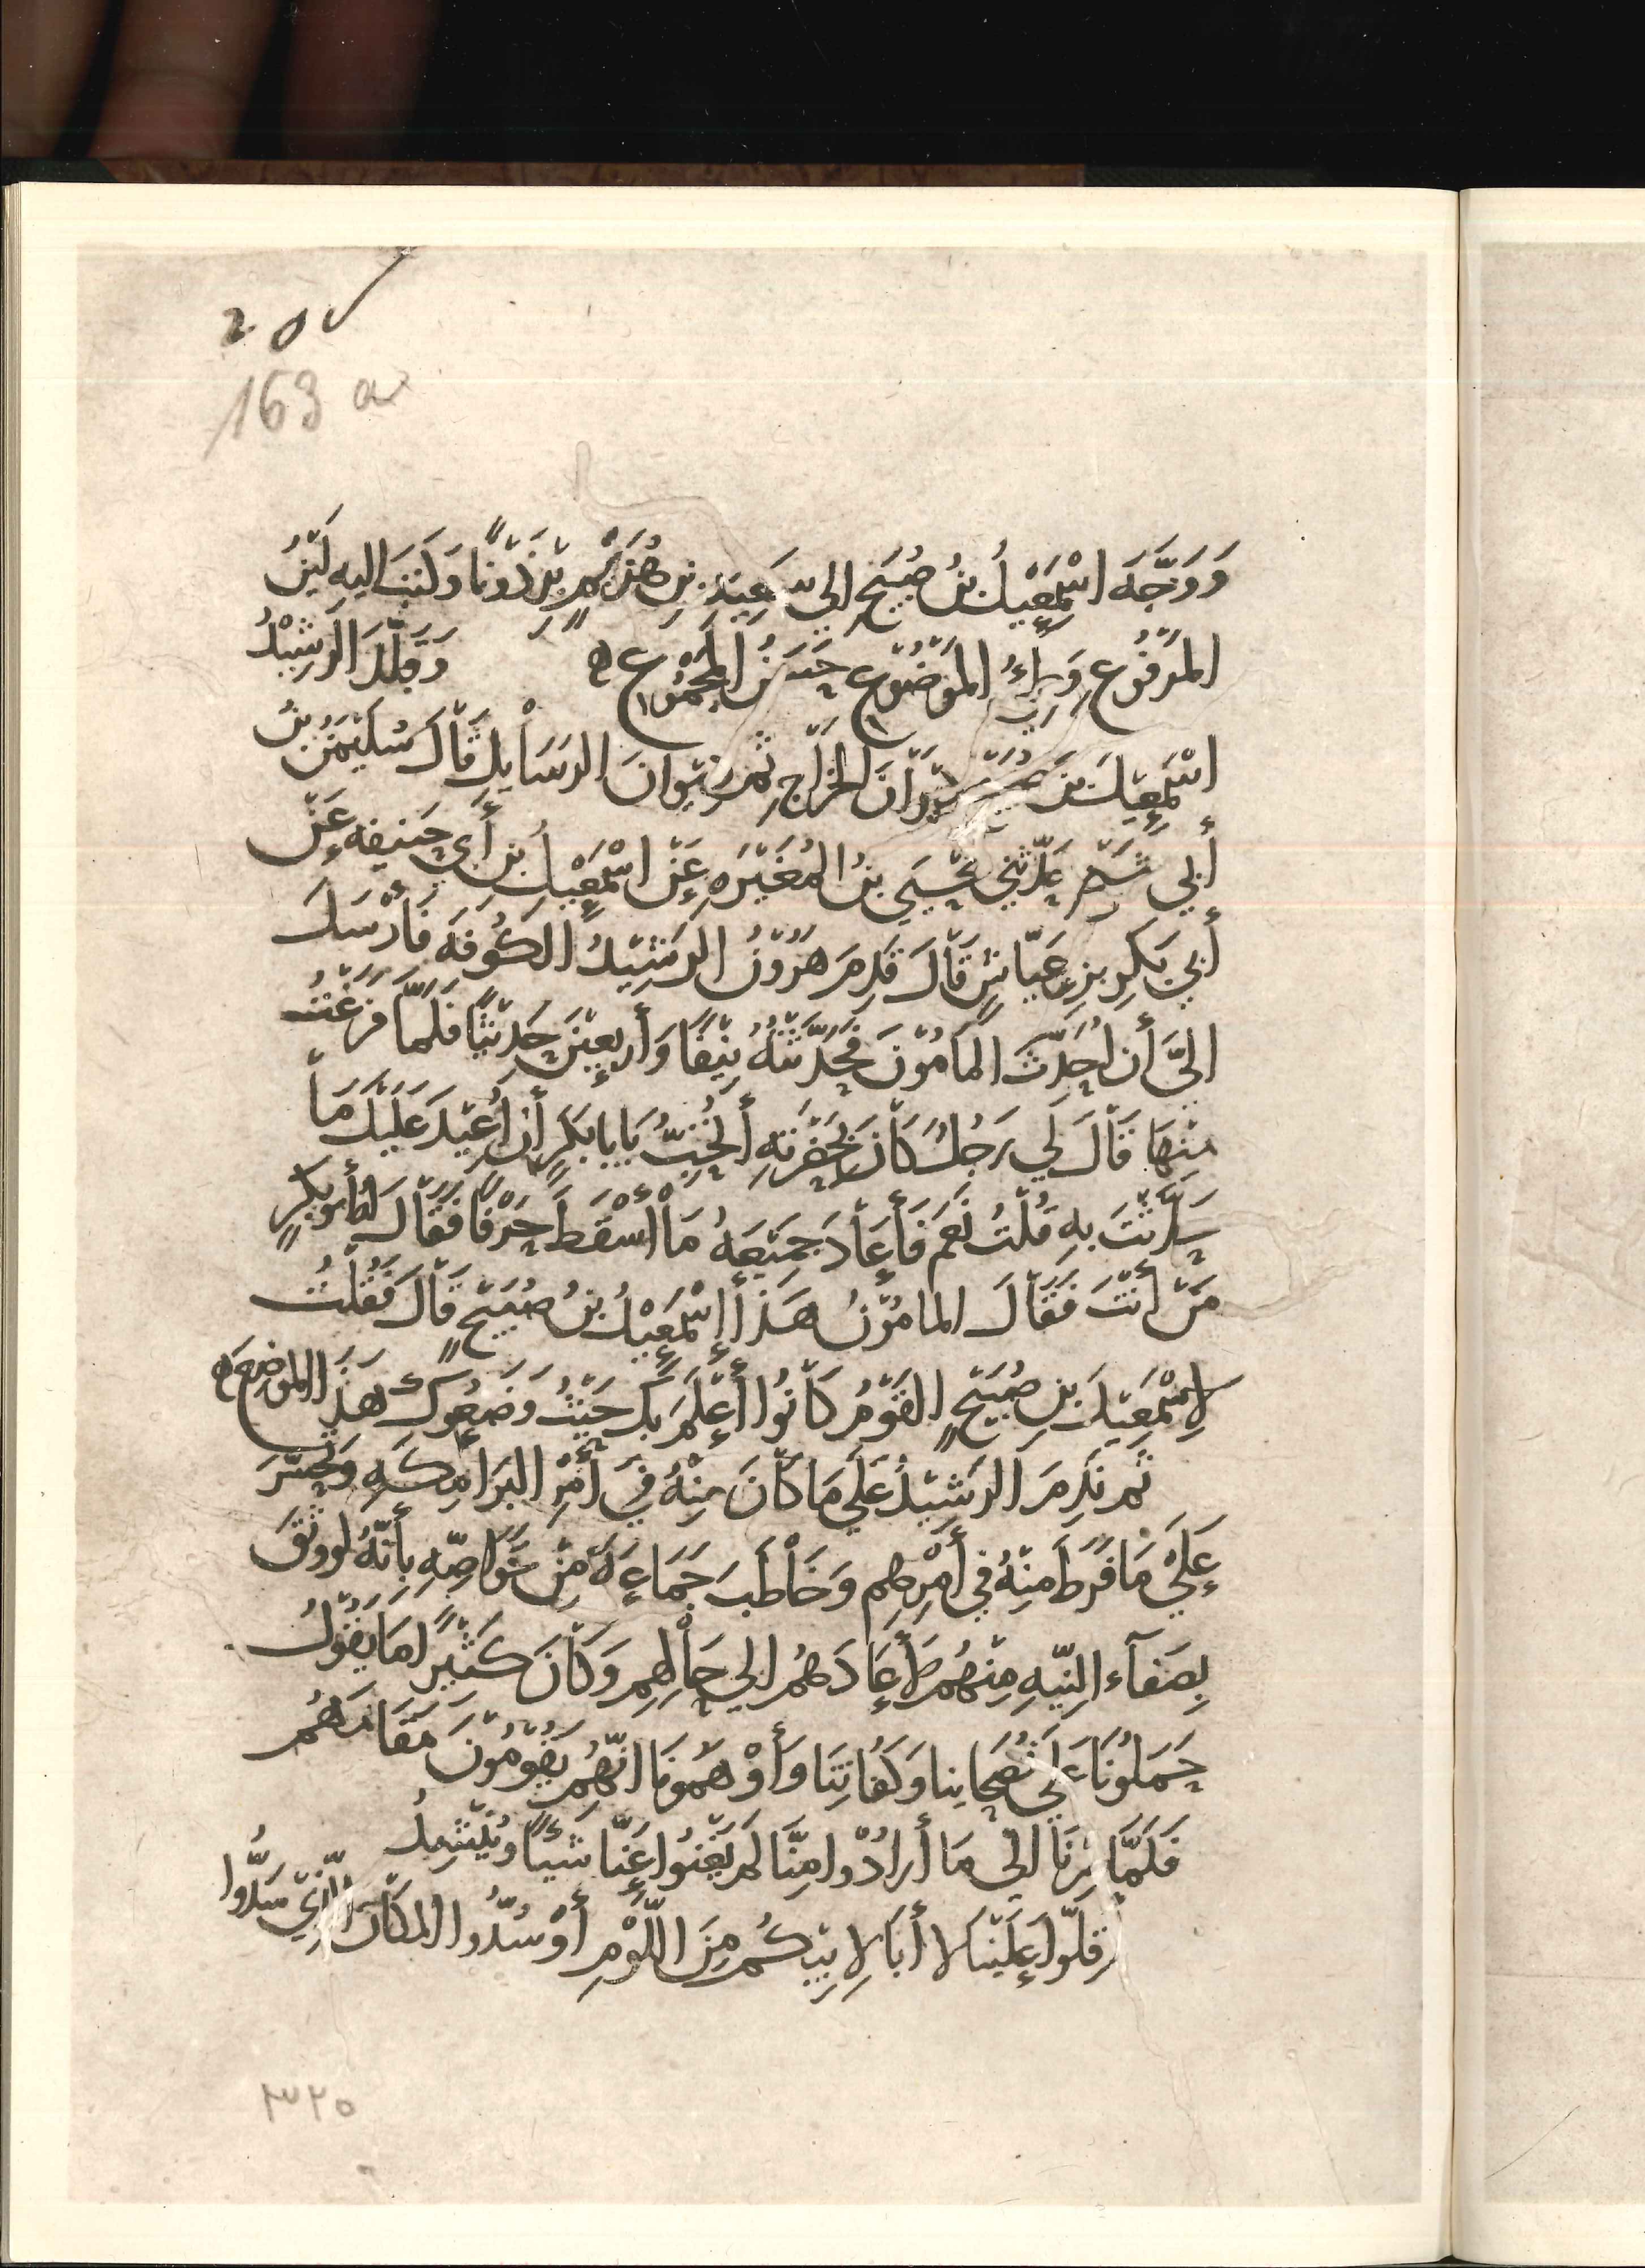 ٢٥٧
163 a
وَوَجَّهَ اسْمٰعِيْلُ بنُ صُبَيْحٍ إلى سَعِيْدِ بنِ هُرَيْمٍ بِرْذَوْنًا وَكَتَبَ اليهِ لَيِّنُ
المَرْفُوعِ وَرِئُ المَوْضُوعِ حَسَنُ المَجْمُوعِ ه وَقَلَّدَ الرشِيْدُ
اسْمٰعِيْلَ بنَ صُبَيْحٍ دِيْوَانَ الخَرَاجِ ثم دِيْوانَ الرسَايلِ قَالَ سُلَيْمٰنُ بنُ
أبي شَيْخٍ حَدَّثَنِي يَحْيَى بنُ المُغَيْرَهِ عَنْ اسْمٰعِيْلَ بنِ أبي حَنيفه عَنْ
أبي بَكرِ بنِ عَيَّاشٍ قَالَ قَدِمَ هٰرُوْنُ الرشِيْدُ الكُوفَهَ فَأَرْسَلَ
الىَّ أن احَدِّثَ المَامُوْنَ فَحَدَّثْتُهُ نَيِّفًا وَأربعِيْنَ حَدِيْثًا فَلَمَّا فَرَغْتُ
مِنهَا قَالَ لي رَجُلٌ كَانَ بِحَضْرَتِهِ أَتُحِبُّ يَابا بَكرٍ أن أُعِيْدَ عَلَيْكَ مَا
حَدَّثْتَ بهِ قُلْتُ نَعَم فَأَعَادَ جَمِيْعَهُ مَا أسْقَطَ حَرْفًا فَقَالَ لهُ أبو بكرٍ
مَنْ أنْتَ فَقَالَ المامُوْنُ هَذَا إسْمٰعِيْلُ بنُ صُبَيْحٍ قَالَ فَقُلْتُ
لِاسْمٰعِيْلَ بنِ صُبَيْحٍ القَوْمُ كَانُوا أَعْلَمَ بِكَ حَيْثُ وَضَعُوكَ هَذَا الموْضِعَ ه
ثم نَدِمَ الرشِيْدُ عَلَى مَا كَانَ مِنْهُ فِي أَمْرِ البَرَامِكَهِ وَتَحَسَّرَ
عَلَى مَا فَرَطَ مِنْهُ في أَمْرِهِم وَخَاطَبَ جَمَاعَةً مِنْ خَوَاصِّهِ بِأَنَّهُ لو وثِقَ
بِصَفَآءِ النِيّهِ مِنْهُم لأَعَادَهُم إلى حَالِهِم وَكَانَ كَثِيْرًا مَا يَقُوْلُ
حَمَلُونَا عَلَى نُصَحَايِنا وَكُفَاتِنَا وَأَوْهَمُونَا انّهُم يَقُوْمُونَ مَقَامَهُم
فَلَمَّا صِرْنَا الى مَا أَرَادُوا مِنَّا لَم يُغْنُوا عَنّا شَيْئًا وَيُنْشِدُ
أَقِلّوا عَلَيْنَا لا أَبَا لِابيْكُم مِنَ اللَّوْمِ أَوْ سُدُّوا المكَانَ الّذِي سَدُّوا
٣٢٥